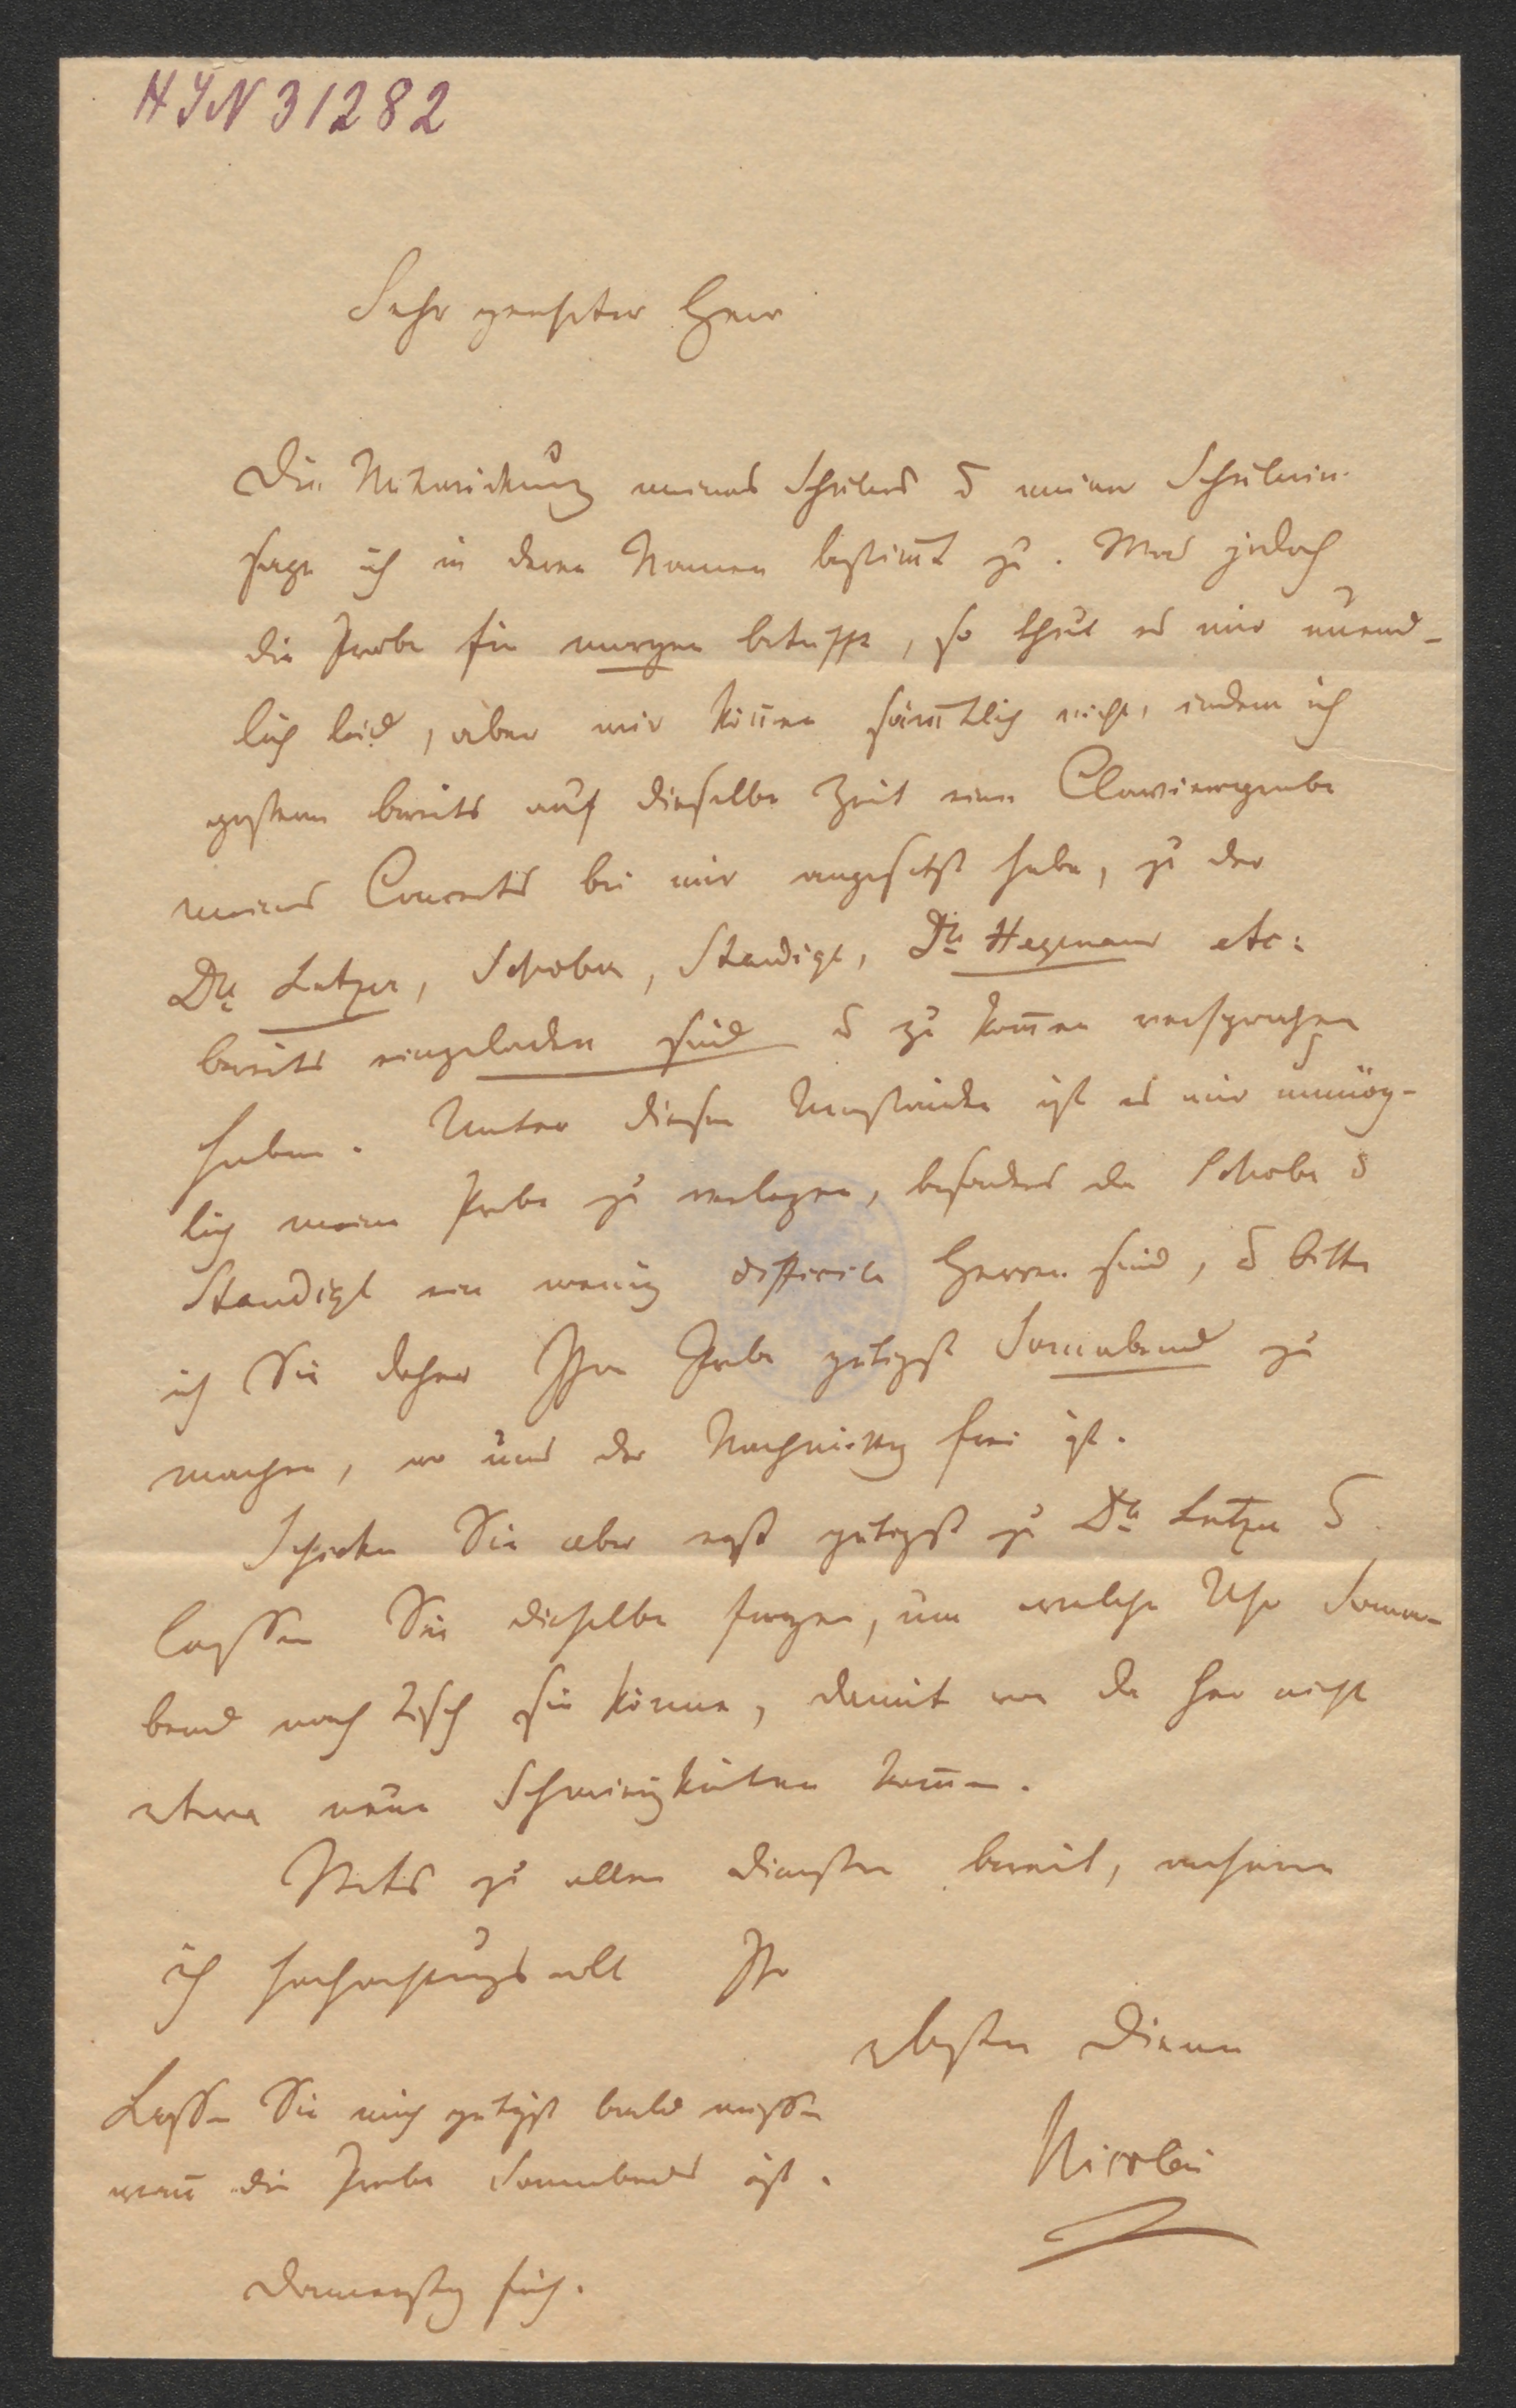 HIN 31282
Sehr geehrter Herr
Die Mitwirkung meines Schülers & meiner Schülerin
sage ich in deren Namen bestim̄t zu. Was jedoch
die Probe für morgen betrifft, so thut es mir unend-
lich leid, aber wir kön̄en säm̄tlich nicht, indem ich
gestern bereits auf dieselbe Zeit eine Clavierprobe
meines Concerts bei mir angesetzt habe, zu der
Dlle Lutzer, Schober, Staudigl, Dlle Hagemann etc:
bereits eingeladen sind & zu kom̄en versprochen
haben. Unter diesen Umständen ist es mir unmög-
lich meine Probe zu verlegen, besonders da Schober &
Staudigl ein wenig difficile Herren sind, & bitte
ich Sie daher Ihre Probe gütigst Sonnabend zu
machen, wo uns der Nachmittag frei ist.
Schicken Sie aber erst gütigst zu Dlle Lutzer &
lassen Sie dieselbe fragen, um welche Uhr Sonna-
bend nach Tisch sie könne, damit von da her nicht
etwa neue Schwierigkeiten kom̄en.
Stets zu allen Diensten bereit, verharre
ich hochachtungsvoll Ihr
Diener
Lassen Sie mich gütigst bald wissen
wan̄ die Probe Sonnabend ist.
Nicolai
Donnerstag früh.